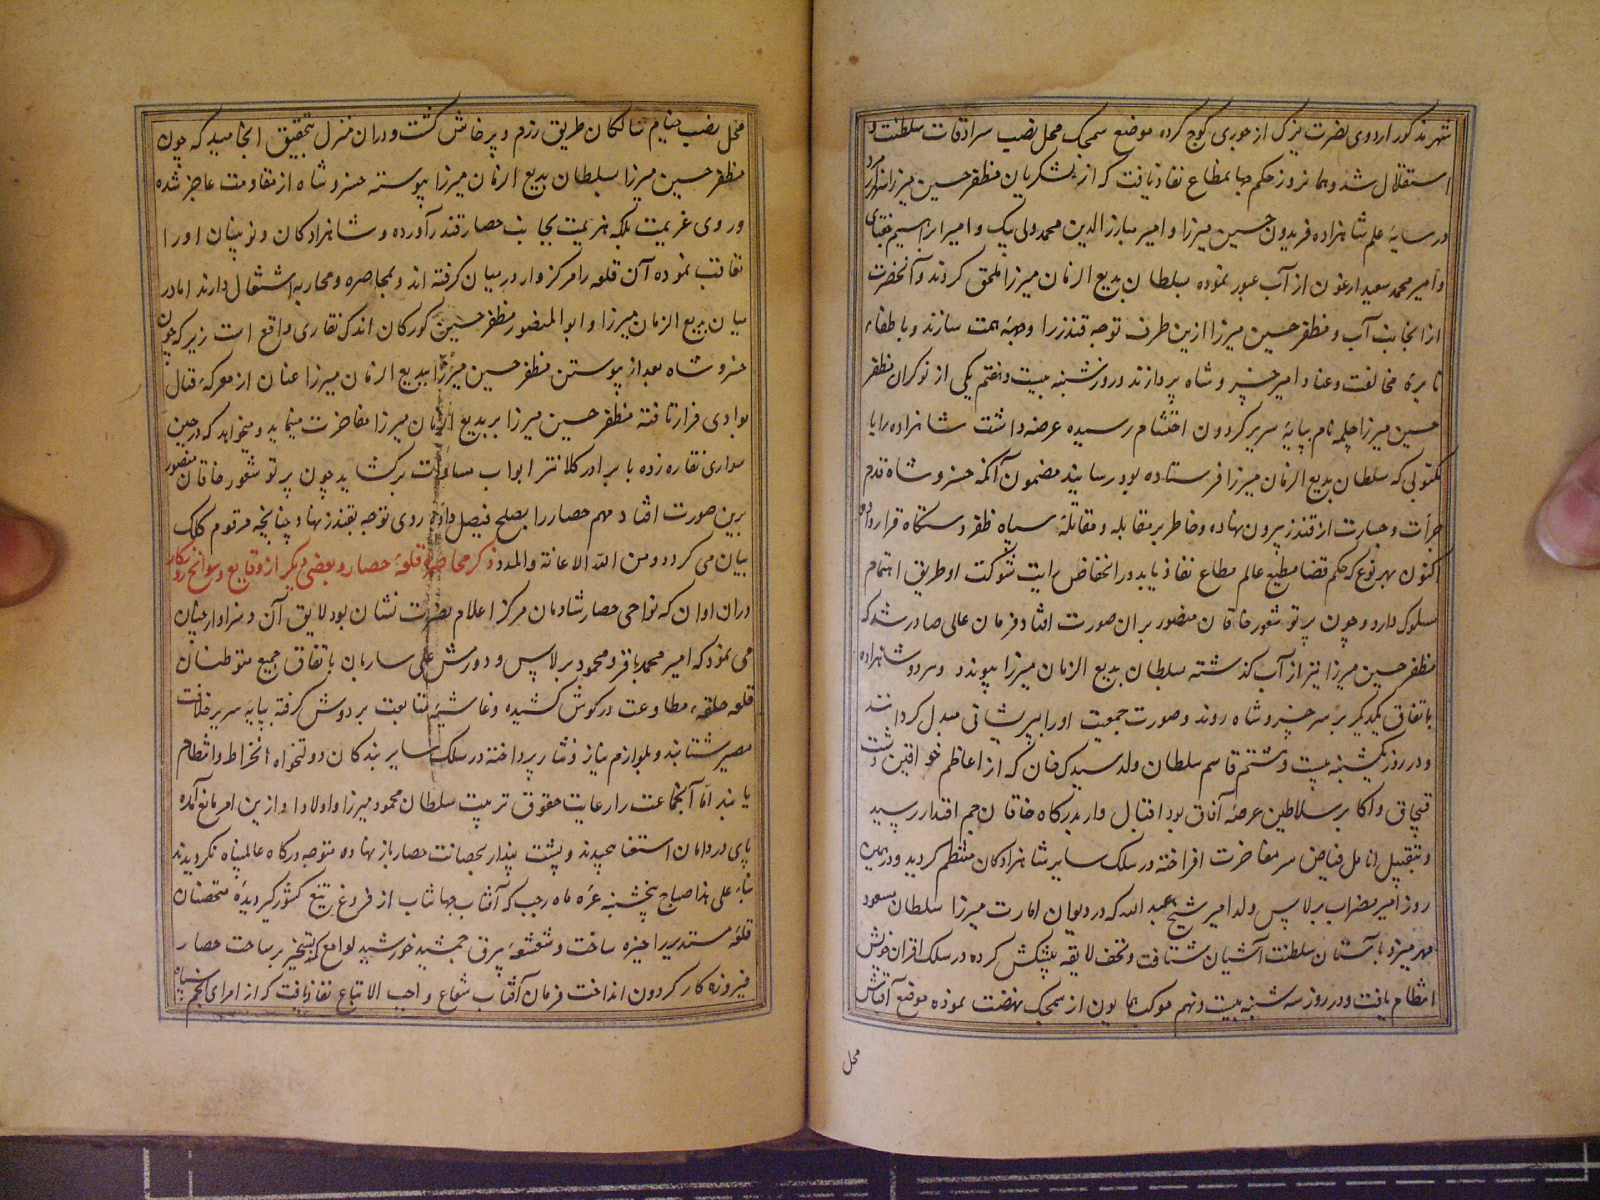 شهر مذکور اردوی نصرت یزک از حوری کوچ کرده موضع سمجک محل نصب سرادقات سلطنت و
استقلال شد و همانروز حکم جهانمطاع نفاذ یافت که از لشکریان مظفر حسین میرزا
در سایهٔ علم شاهزاده فریدون حسین میرزا و امیر مبارزالدین محمد ولی بیک و امیر ابراسیم
و امیر محمد سعید ارغون از آب عبور نموده بسلطان بدیع الزمان میرزا ملحق کردند و آنحضرت
ازانجانب آب و مظفر حسین میرزا ازین طرف توجه قندز را وجههٔ همت سازند و باطفاء
نایرهٔ مخالفت و عناد امیر خسرو شاه پردازند و روز شنبه بیست و هفتم یکی از نوکران مظفر
حسین میرزا چلمه نام بپایهٔ سریر کردون احتشام رسیده عرضه داشت شاهزاده را با
مکتوبی که سلطان بدیع الزمان میرزا فرستاده بود رسانید مضمون آنکه خسرو شاه قدم
جرأت و جسارت از قندز بیرون نهاده و خاطر بر مقابله و مقاتلهٔ سپاه ظفر دستکاه قرار داده
اکنون بهر نوع که حکم قضا مطیع عالم مطاع نفاذ یابد در انخفاض رایت شوکت او طریق اهتمام
مسلوک دارد و چون پرتو شعور خاقان منصور بران صورت افتاد فرمان عالی صادر شد که
مظفر حسین میرزا نیز از آب کذشته بسلطان بدیع الزمان میرزا پیوندد و هردو شاهزاده
باتفاق یکدیکر بر سر خسرو شاه روند و صورت جمعیت او را بپریشانی مبدل کردانند
و در روز یکشنبه بیست و هشتم قاسم سلطان ولد سیدک خان که از اعاظم خواقین دشت
قبچاق و اکابر سلاطین عرصهٔ آفاق بود اقبال وار بدرکاه خاقان جم اقتدار رسید
و بتقبیل انامل فیاض سر مفاخرت افراخته در سلک سایر شاهزادکان منتظم کردید و در همین
روز امیر مضراب برلاس ولد امیر شیخ عبد الله که در دیوان امارت میرزا سلطان مسعود
مهر میزد بآستان سلطنت آشیان شتافت و تحف لایقه پیشکش کرده در سلک اقران خویش
انتظام یافت و در روز سه شنبه بیست و نهم موکب همایون از سمجک نهضت نموده موضع
محل
محل نصب خیام سالکان طریق رزم و پرخاش کشت و دران منزل بتحقیق انجامید که چون
مظفر حسین میرزا بسلطان بدیع الزمان میرزا پیوسته خسرو شاه از مقاومت عاجز شده
و روی عزیمت بلکه هزیمت بجانب حصار قندز آورده و شاهزادکان و نوینان او را
تعاقب نموده آن قلعه را مرکز وار در میان کرفته اند و بمحاصره و محاربه اشتغال دارند اما در
میان بدیع الزمان میرزا و ابوالمنصور مظفر حسین کورکان اندک نقاری واقع است زیراکه چون
خسرو شاه بعد از پیوستن مظفر حسین میرزا ببدیع الزمان میرزا عنان از معرکهٔ قتال
بوادی فرار تافته مظفر حسین میرزا بر بدیع الزمان میرزا مفاخرت مینماید و میخواهد که در حین
سواری نقاره زده با برادر کلانتر ابواب مساوات برکشاید چون پرتو شعور خاقان منصور
برین صورت افتاد مهم حصار را بصلح فیصل داده روی توجه بقندز نهاد چنانچه مرقوم کلک
بیان می کردد و من الله الاعانة والمدد ذکر محاصرهٔ قلعهٔ حصار و بعضی دیکر از وقایع و سوانح روزکار
دران اوان که نواحی حصار شادمان مرکز اعلام نصرت نشان بود لایق آن و سزاوار چنان
می نمود که امیر محمد باقر و محمود برلاس و دورمش علی ساربان باتفاق جمیع متوطنان
قلعه حلقهٔ مطاوعت در کوش کشیده و غاشیهٔ متابعت بر دوش کرفته بپایه سریر خلافت
مصیر شتابند و بلوازم نیاز و نثار پرداخته در سلک سایر بندکان دولتخواه انخراط و انتظام
یابند اما آنجماعت را رعایت حقوق تربیت سلطان محمود میرزا و اولاد او ازین امر مانع آمده
پای در دامان استغنا پیچیدند و پشت پندار بحصانت حصار باز نهاده متوجه درکاه عالمپناه نکردیدند
بناء علی هذا صباح پنجشنبه غرهٔ ماه رجب که آفتاب جهانتاب از فروغ تیغ کشورکیر دیدهٔ متحصنان
قلعهٔ مستدیر را خیره ساخت و شعشعهٔ بیرق جمشید خورشید لوامع تسخیر بر ساحت حصار
فیروزه کار کردون انداخت فرمان آفتاب شعاع واجب الاتباع نفاذ یافت که از امرای انجم سپاه